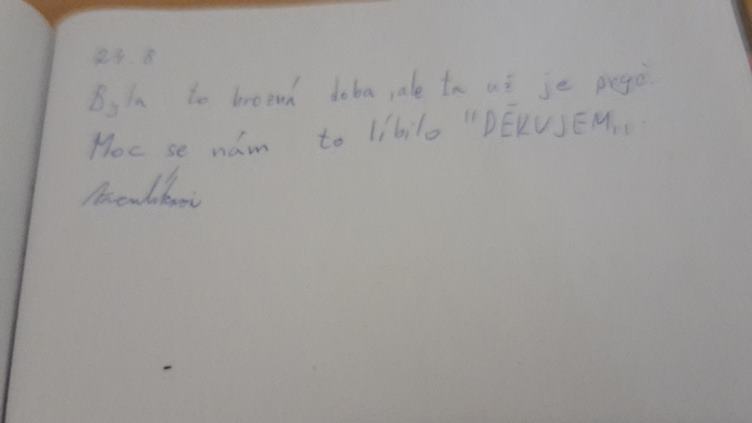 24.8
Byla to hrozná doba, ale ta už je pryč.
Moc se nám to líbilo "DĚKUJEM„.